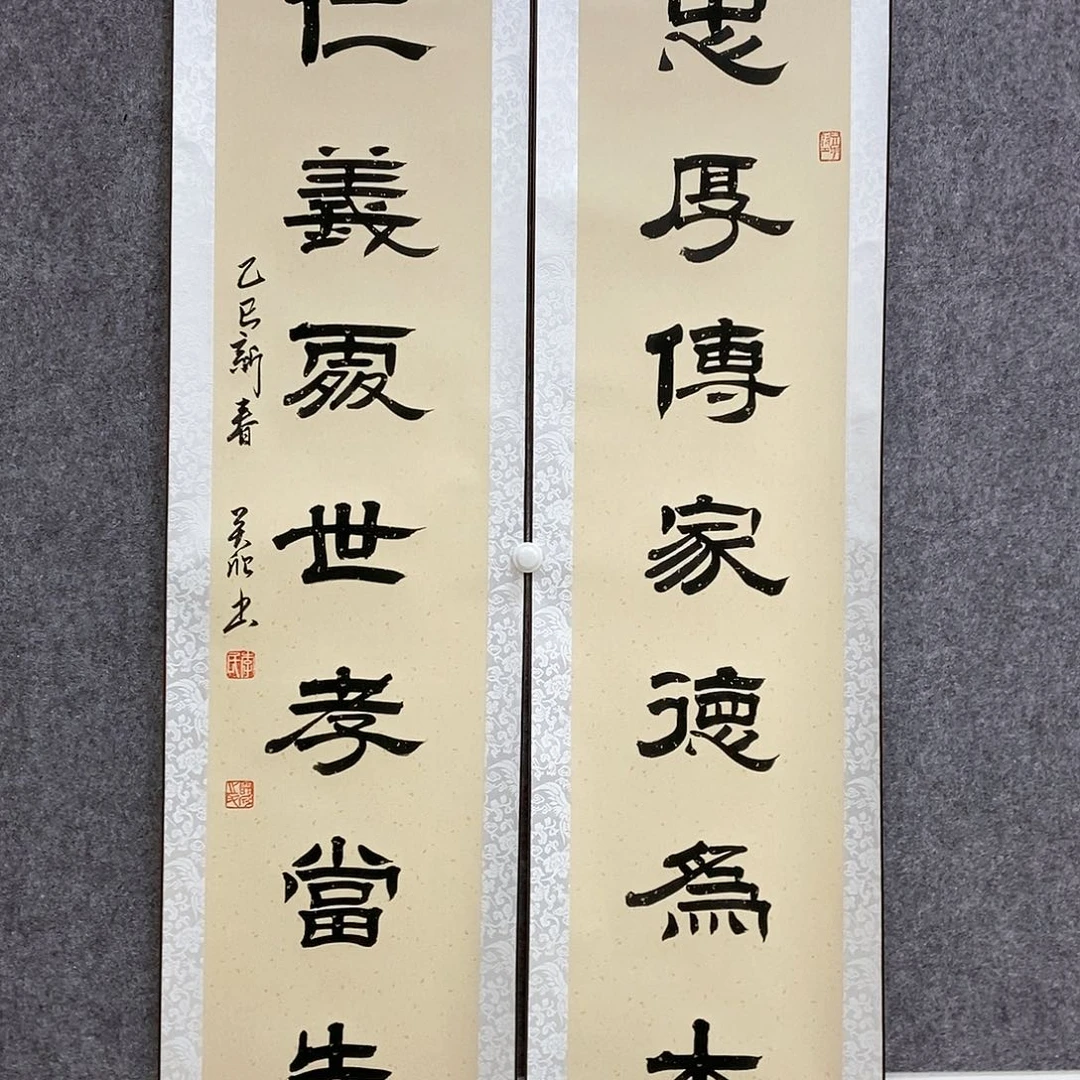 忠厚傳家德為本
仁義處世孝當先
乙巳新春
書